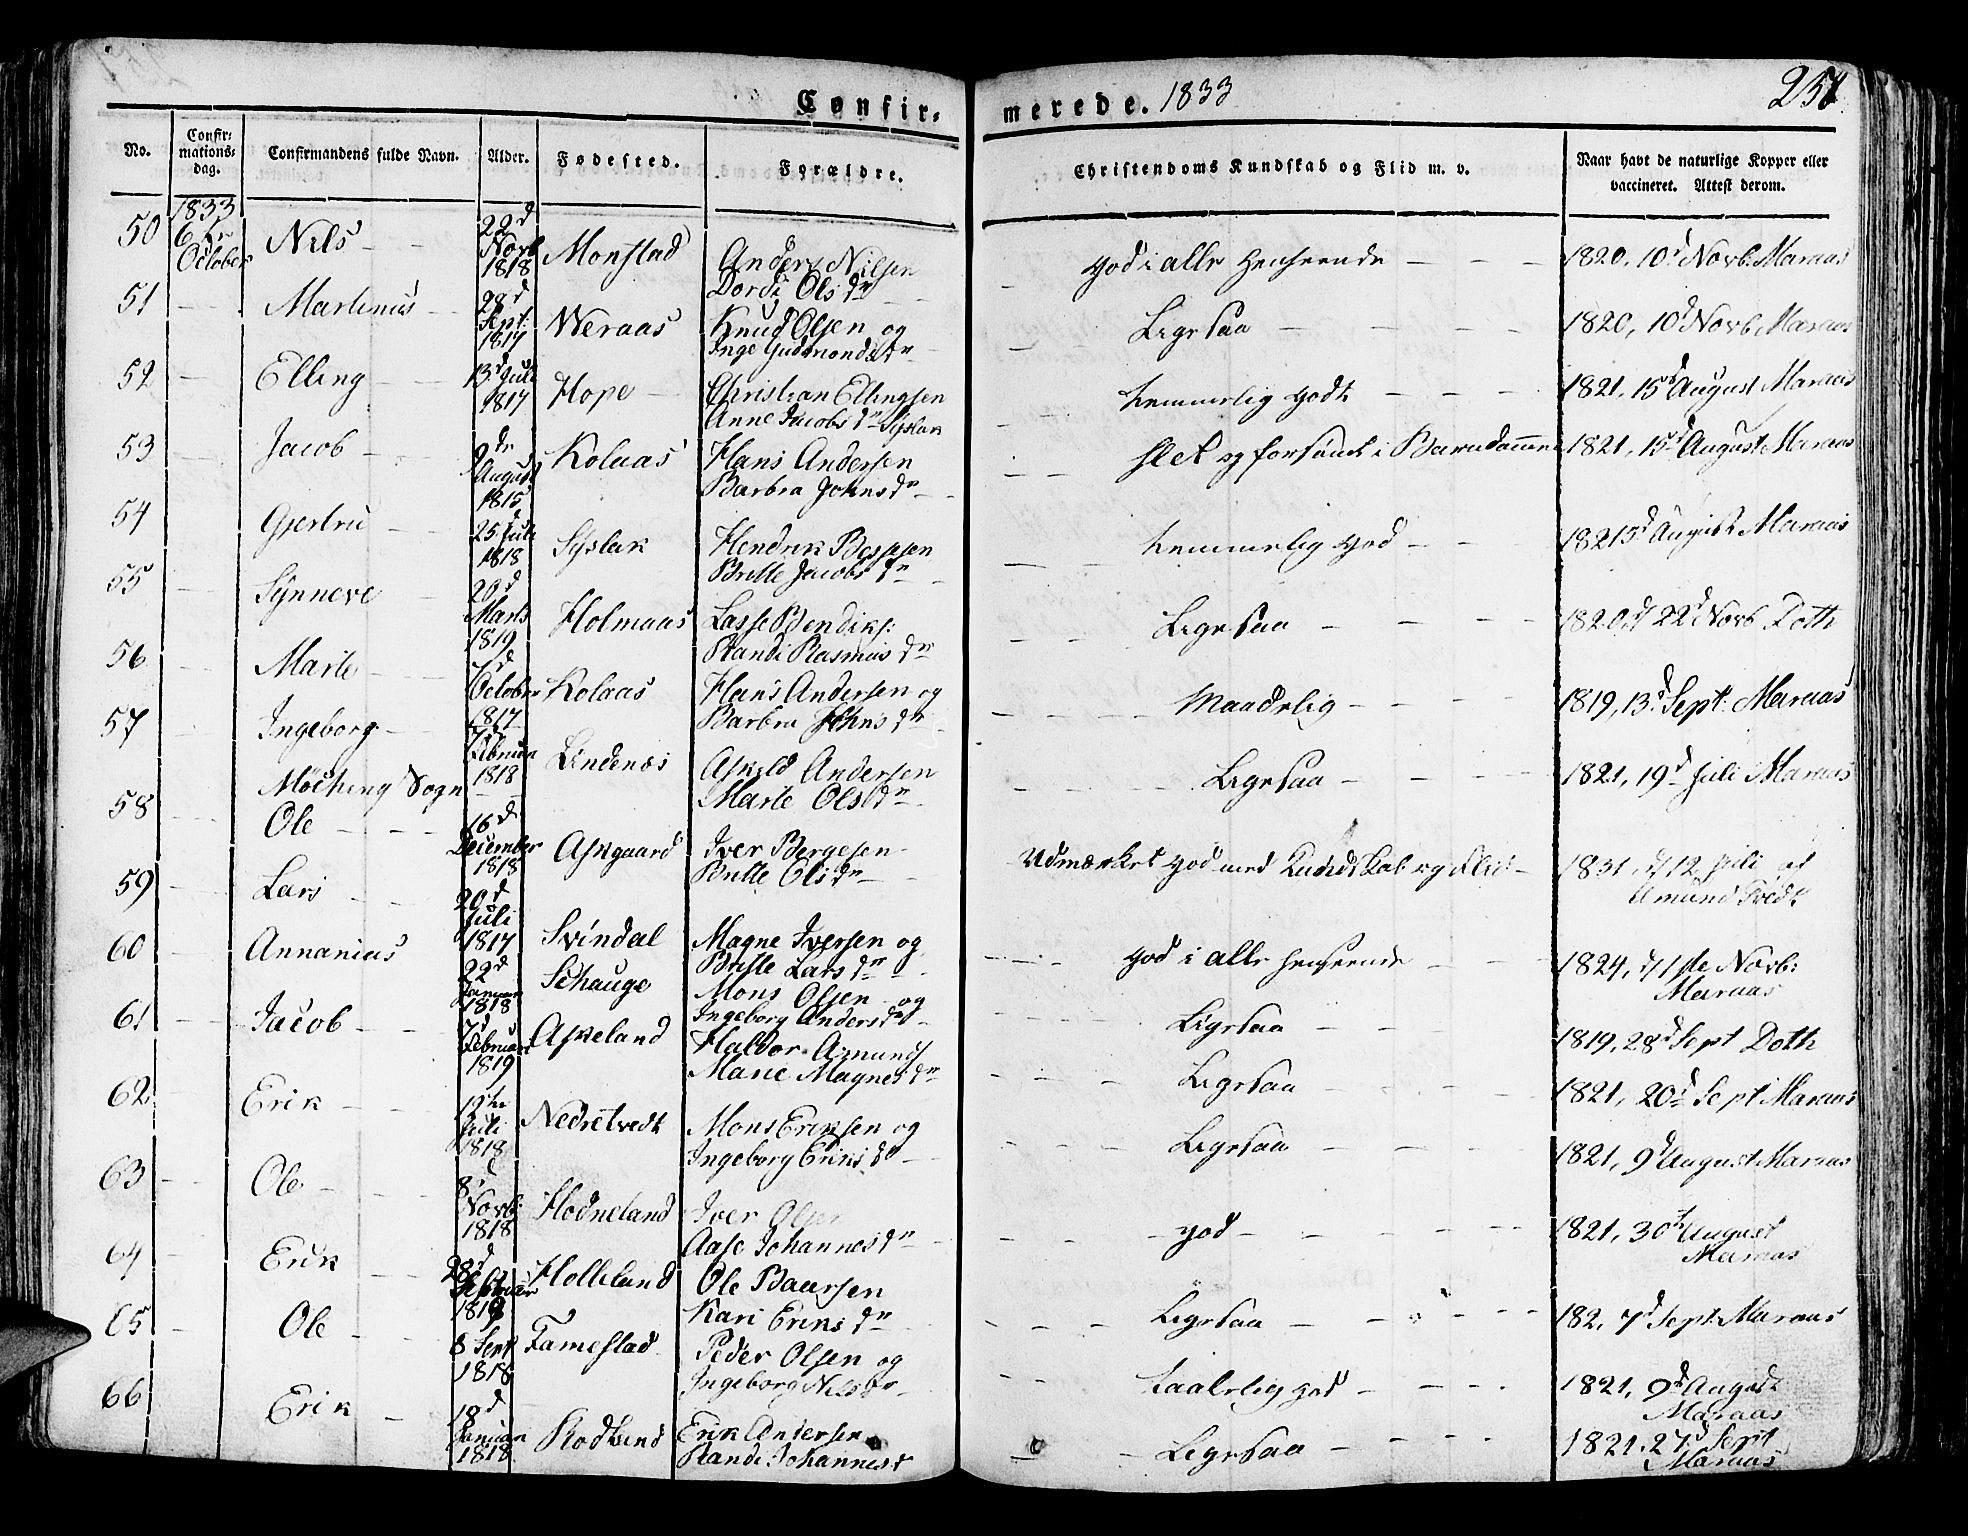 Confir-
merede. 1833
251
No.
Confir-
mations-
dag.
Confirmandens fulde Navn.
Alder.
Fødested.
Forældre.
Christendoms Kundskab og Flid m. v.
Naar havt de naturlige Kopper eller
vaccineret. Attest derom.
1833
50 6te October Nils 22d Novb 1818 Monstad Anders Nilsen Dordi Ols dr God i alle Henseende 1820, 10d Novb. Maraas
51 Martinus 28d Sept: 1817 Weraas Knud Olsen og Inge Gudmonds dr Ligesaa 1820, 10d Novb. Maraas
52 Elling 13d Juli 1817 Hope Christian Ellingsen Anne Jacobs dr Syslak temmelig godt 1821, 15d August Maraas
53 Jacob August 1815 Kolaas Hans Andersen Barbra Johns dr slet og forsømt i Barndommen 1821, 15d August Maraas
54 Gjertru 25d Juli 1818 Syslak Hendrik Britte Jacobs dr temmelig god August Maraas
55 Synneve 20d Marts 1819 Holmaas Lasse Bendiks: Randi Rasmus dr Ligesaa 1820, d 22d Novb Doth
56 Marte 7d October 1817 Kolaas Hans Andersen og Barbra Johns dr Maadelig 1819, 13d Sept: Maraas
57 Ingeborg Februar 1818 Lindenæs Askild Andersen Marte Ols dr Ligesaa 1821, 19d Juli Maraas
Möching Sogn
58 Ole 16d December 1818 Askgaard Iver Bergesen Britte Ols dr Udmærket god med Kundskab og Flid 1831, d 12 Juli af Amund Tvedt
59 Lars 20d Juli 1817 Svindal Magne Iversen og Britte Lars dr God i alle Henseende 1824, d 1ste Novb: Maraas
60 Annanias 22d Januar 1818 Schauge Mons Olsen og Ingeborg Anders dr Ligesaa 1819, 28d Sept Doth
61 Jacob 7d Februar 1819 Askeland Haldor Asmunds Marie Magnes dr Ligesaa 1821, 20d Sept Maraas
62 Erik Juli 1818 Nedretvedt Mons Eriksen og Ingeborg Eriks dr Ligesaa 1821, 9d August Maraas
63 Ole 8d Novb: 1818 Hodneland Iver Olsen Aase Johannes dr god 1821, 30d August Maraas
64 Erik 28d 1818 Holleland Ole Baarsen Kari Eriks dr Ligesaa 182, 7d Sept: Maraas
65 Ole 8 Sept 1818 Famestad Peder Olsen og Ingeborg Nils dr taalelig god 1821, 9d August Maraas
66 Erik 18d Januar 1818 Rodland Erik Andersen Randi Johannes d Ligesaa 1821. 27d Sept Maraas